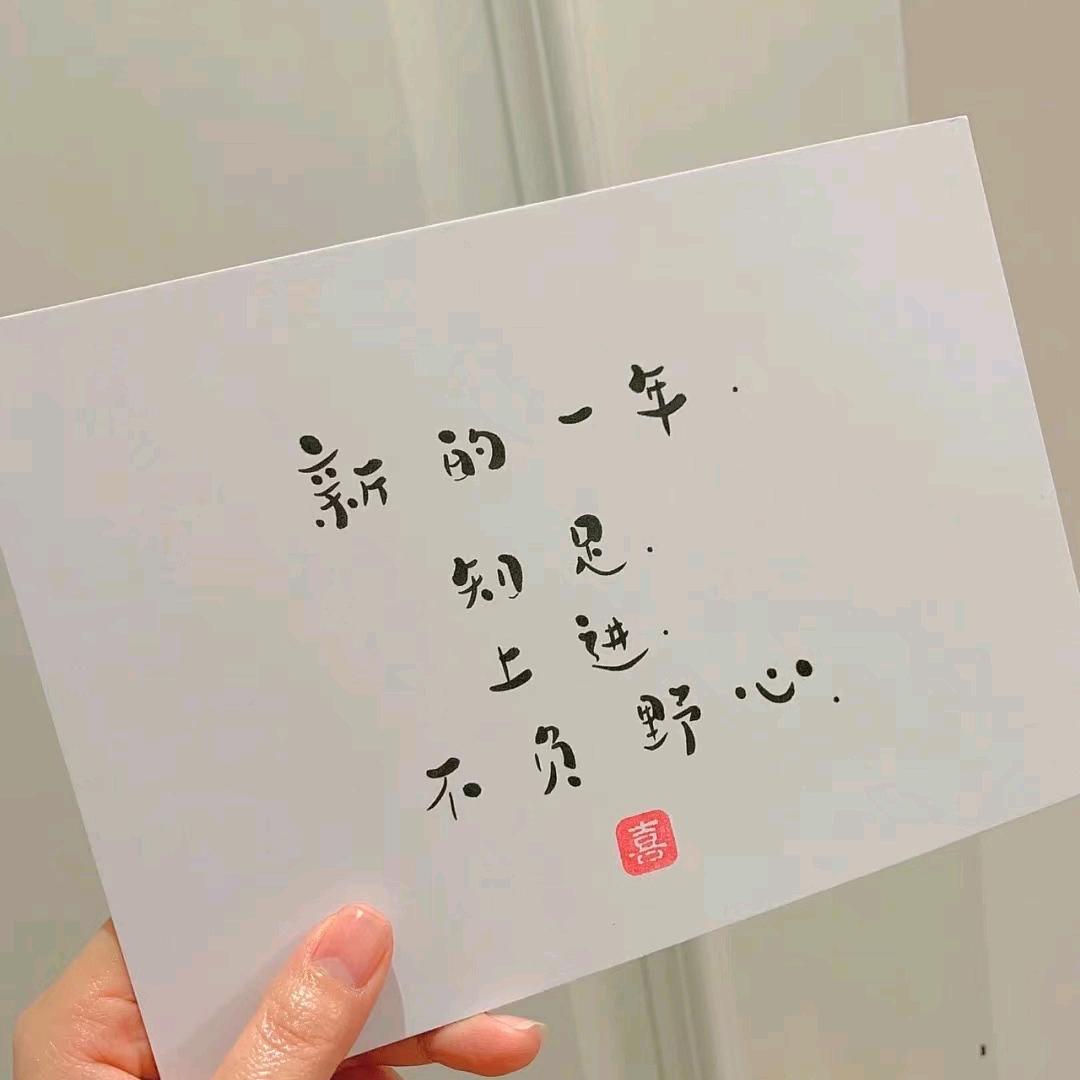 新的一年.
知足.
上进.
不负野心.
喜